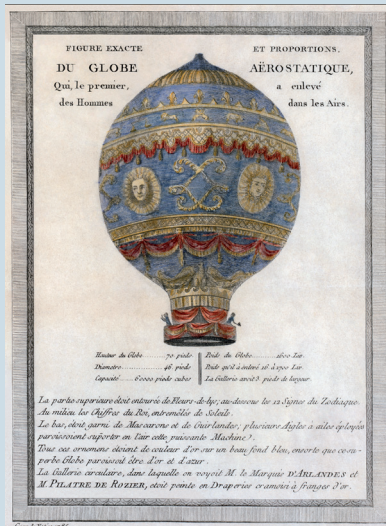 FIGURE EXACTE ET PROPORTIONS,
DU GLOBE AËROSTATIQUE,
Qui, le premier, a enlevé
des Hommes dans les Airs.
Hauteur du Globe 70 pieds
Diametre 46 pieds
Capacité 60000 pieds cubes
Poids du Globe 1600 Liv.
Poids qu'il a enlevé 16 à 1700 Liv.
La Gallerie avoit 3 pieds de largeur.
La partie superieure étoit entourée de Fleurs-de-lys, au-dessous les 12 Signes du Zodiaque.
Au milieu les Chiffres du Roi, entremêlés de Soleils.
Le bas, étoit garni de Mascarons et de Guirlandes; plusieurs Aigles à ailes éployées
paroissoient suporter en l'air cette puissante Machine.
Tous ces ornemens étoient de couleur d'or sur un beau fond bleu, ensorte que ce su-
perbe Globe paroissoit être d'or et d'azur.
La Gallerie circulaire, dans laquelle on voyoit M. le Marquis D'ARLANDES et
M. PILATRE DE ROZIER, étoit peinte en Draperies cramoisi à franges d'or.